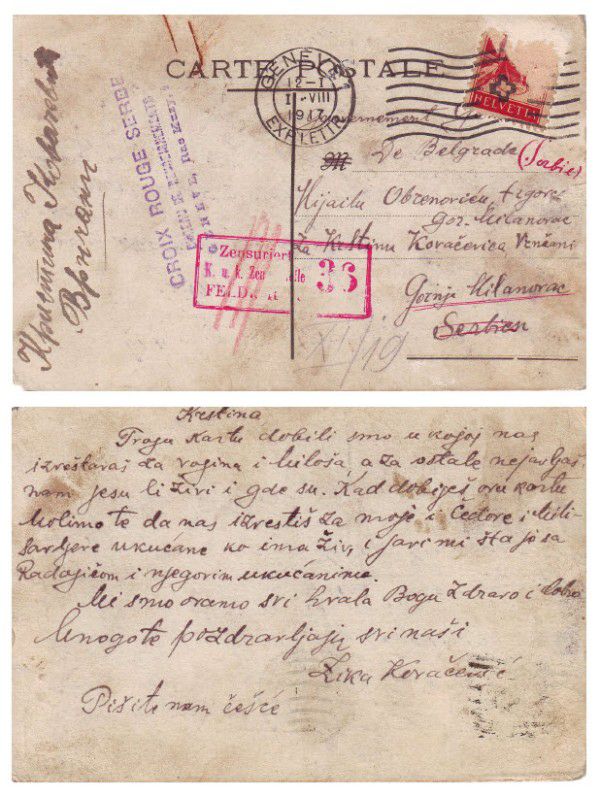 CARTE POSTALE
GENÈVE 1
12-1
1-VIII
1917
EXP. LETTR.
HELVETIA
CROIX ROUGE SERBE
GENÈVE, Rue
Gouvernement
De Belgrade (Serbie)
Mijailu Obrenoviću trgovc
Gor. Milanovac
Za Krstinu Kovačevića Vrnčani
Gornji Milanovac
Serbien
Zensuriert
K. u. k. Zensurstelle
36
XI/19
Кристина Ковачевић
Врнчани
Krstina
Tvoju kartu dobili smo u kojoj nas
izveštavaš za i Miloša, a za ostale nejavljaš
nam jesu li živi i gde su. Kad dobiješ ovu kartu
Molimo te da nas izvestiš za moje i Čedove i Mili-
sardjeve ukućane ko ima živ, i javi mi šta je sa
Radojičom i njegovim ukućanima.
Mi smo ovamo svi hvala Bogu zdravo i dobro
Mnogo te pozdravljaju svi naši
Žika Kovačević
Pišite nam češće